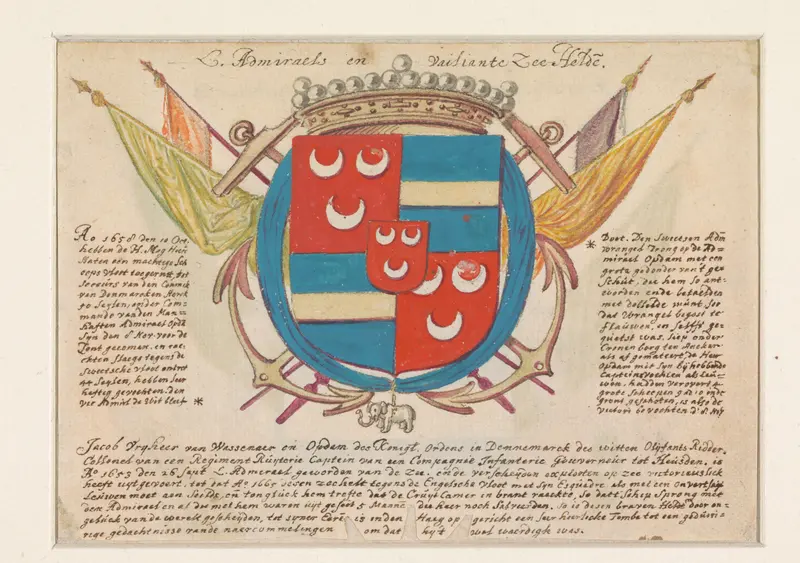 L. Admiraels en Vailiante Zee Helde.
Ao 1658 den 10 Oct.
hebben de H. Mog Heeri
Staten een machtige Sch
eeps vloot toegerust, tot
secours van den Conninck
van Denmarcken
te Seylen, onder Com=
mando van den Man=
haften Admirael Opda
Syn den 8 Nov voor de
Zont gecomen, en
chten Slage tegens de
Sweetsche vloot
Seylen, hebben seer
heftig gevochten. den
vice Admirl de Wit bleef *
* Doot. Den Sweetsen Adm
Wrangel drong op de Ad=
mirael Opdam met een
grote gedonder van't ges
Schut, die hem so ant=
woorden ende betaelden
met dollheede wiint so
dat Wrangel begost te
flauwen, en selffs ge=
quetst was, liep onder
Cronenborg ten Ancker
als af gematteert, de Heer
Opdam met syn bijhebbende
Capteins vochten als Leeu=
wen, hadden verovert 4
grote scheepen en in de
gront geschoten, is also de
victorie bevochten
Jacob Vryheer van Wassenaer en Opdam des Konigl. Ordens in Dennemarck des witten Olyfants Ridder,
Collonel van een Regiment Ruyterie Captein van een Compagnie Infanterie, Gouverneur tot Heusden, is
Ao 1653 den 26 Sept L. Admerael geworden van de Zee. ende verscheyden exploiten op zee victorieuslick
heeft uytgevoert, tot dat Ao 1665 in een zee slach tegens de Engelsche Vloot met syn Esquadre als met een onvertsaegt
Leeuwen moet aen vocht, en t'ongluck hem trefte dat de Cruyt Camer in brant raeckte, so datt Schip Sprong met
den Admirael en al die met hem waren uyt geseyt 5 Manne die hier noch Salveerden. so is desen braven Heldt door on=
geluck van de werelt gescheyden, tot syner Eere is in den Haeg op gericht een seer heerlicke Tombe tot een gedueri=
rige, gedachtnisse van de naercommelingen om dat hyt wel waerdigh was.